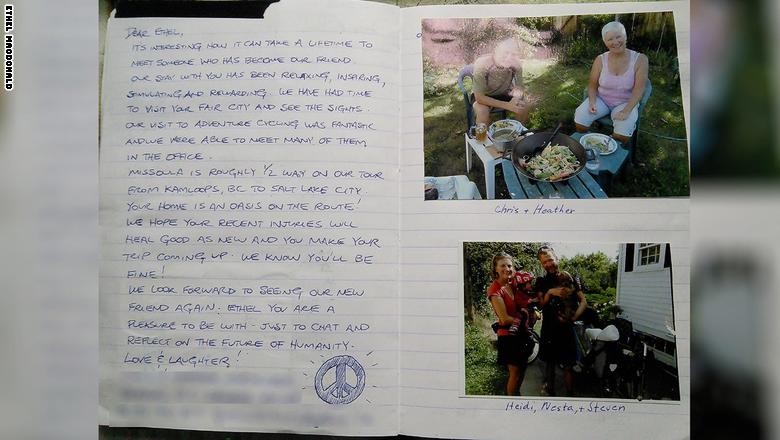 ETHEL MACDONALD
DEAR ETHEL,
IT'S INTERESTING HOW IT CAN TAKE A LIFETIME TO
MEET SOMEONE WHO HAS BECOME OUR FRIEND.
OUR STAY WITH YOU HAS BEEN RELAXING, INSPIRING,
STIMULATING AND REWARDING. WE HAVE HAD TIME
TO VISIT YOUR FAIR CITY AND SEE THE SIGHTS.
OUR VISIT TO ADVENTURE CYCLING WAS FANTASTIC
AND WE WERE ABLE TO MEET MANY OF THEM
IN THE OFFICE.
MISSOULA IS ROUGHLY 1/2 WAY ON OUR TOUR
FROM KAMLOOPS, BC TO SALT LAKE CITY.
YOUR HOME IS AN OASIS ON THE ROUTE!
WE HOPE YOUR RECENT INJURIES WILL
HEAL GOOD AS NEW AND YOU MAKE YOUR
TRIP COMING UP. WE KNOW YOU'LL BE
FINE!
WE LOOK FORWARD TO SEEING OUR NEW
FRIEND AGAIN. ETHEL YOU ARE A
PLEASURE TO BE WITH - JUST TO CHAT AND
REFLECT ON THE FUTURE OF HUMANITY.
LOVE & LAUGHTER!
Chris + Heather
Heidi, Nesta, + Steven